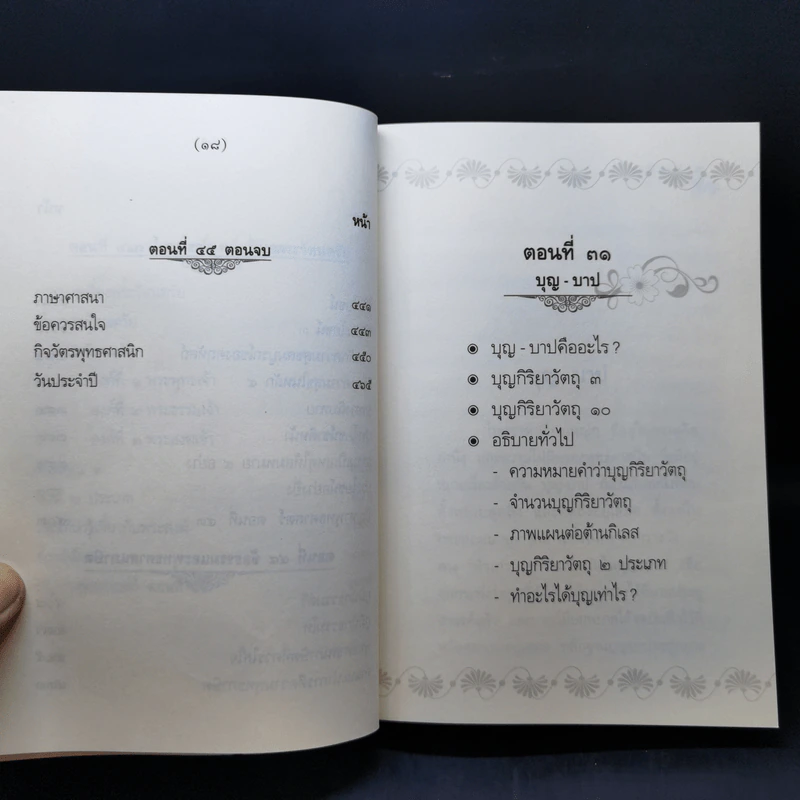 (๑๘)
หน้า
ตอนที่ ๔๕ ตอนจบ
ภาษาศาสนา ๔๔๑
ข้อควรสนใจ ๔๔๓
กิจวัตรพุทธศาสนิก ๔๕๐
วันประจำปี ๔๖๕
ตอนที่ ๓๑
บุญ - บาป
บุญ - บาปคืออะไร ?
บุญกิริยาวัตถุ ๓
บุญกิริยาวัตถุ ๑๐
อธิบายทั่วไป
- ความหมายคำว่าบุญกิริยาวัตถุ
- จำนวนบุญกิริยาวัตถุ
- ภาพแผนต่อต้านกิเลส
- บุญกิริยาวัตถุ ๒ ประเภท
- ทำอะไรได้บุญเท่าไร ?